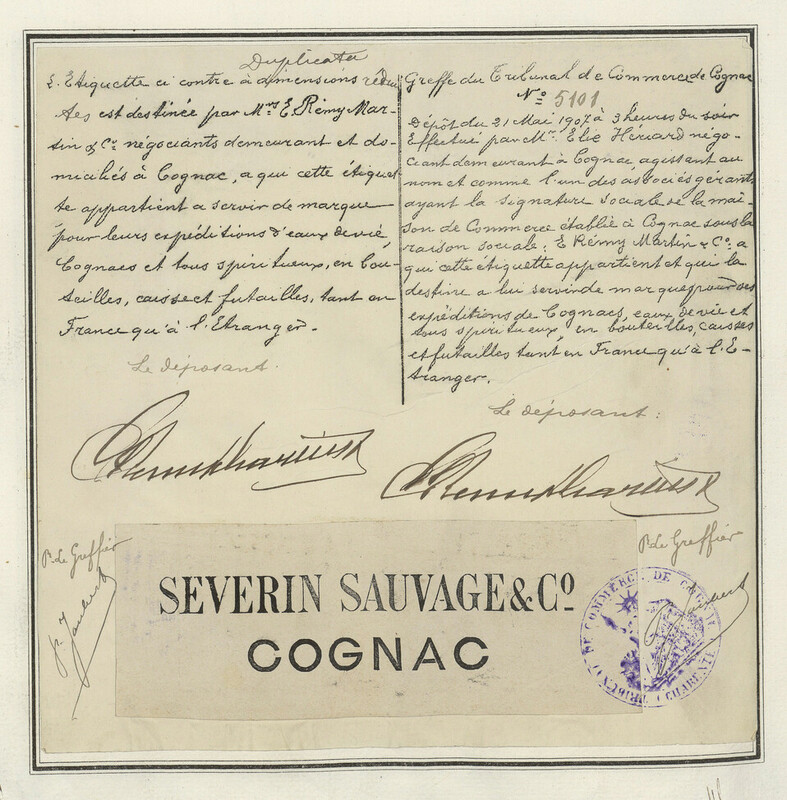 Duplicata
L'Etiquette ci contre à dimensions rédui
tes est destinée par Mrs E. Rémy Mar-
tin & Cie négociants demeurant et do-
miciliés à Cognac, a qui cette étiquet
te appartient a servir de marque
pour leurs expéditions d'eaux de vie,
Cognacs et tous spiritueux, en bou-
teilles, caisses et futailles, tant en
France qu'à l'Etranger.
Le déposant.
Greffe du Tribunal de Commerce de Cognac
No 5101
Dépôt du 21 Mai 1907 à 3 heures du soir
Effectué par Mr. Elie Hériard négo-
ciant demeurant à Cognac agissant au
nom et comme l'un des associés gérants
ayant la signature sociale de la mai-
son de Commerce établie à Cognac sous la
raison sociale: E. Rémy Martin & Co. a
qui cette étiquette appartient et qui la
destine a lui servir de marque pour ses
expéditions de Cognacs, eaux de vie et
tous spiritueux, en bouteilles, caisses
et futailles tant en France qu'à l'E-
tranger.
Le déposant:
P. Le Greffier
P. Le Greffier
SEVERIN SAUVAGE & Co
COGNAC
TRIBUNAL DE COMMERCE DE COGNAC (CHARENTE)